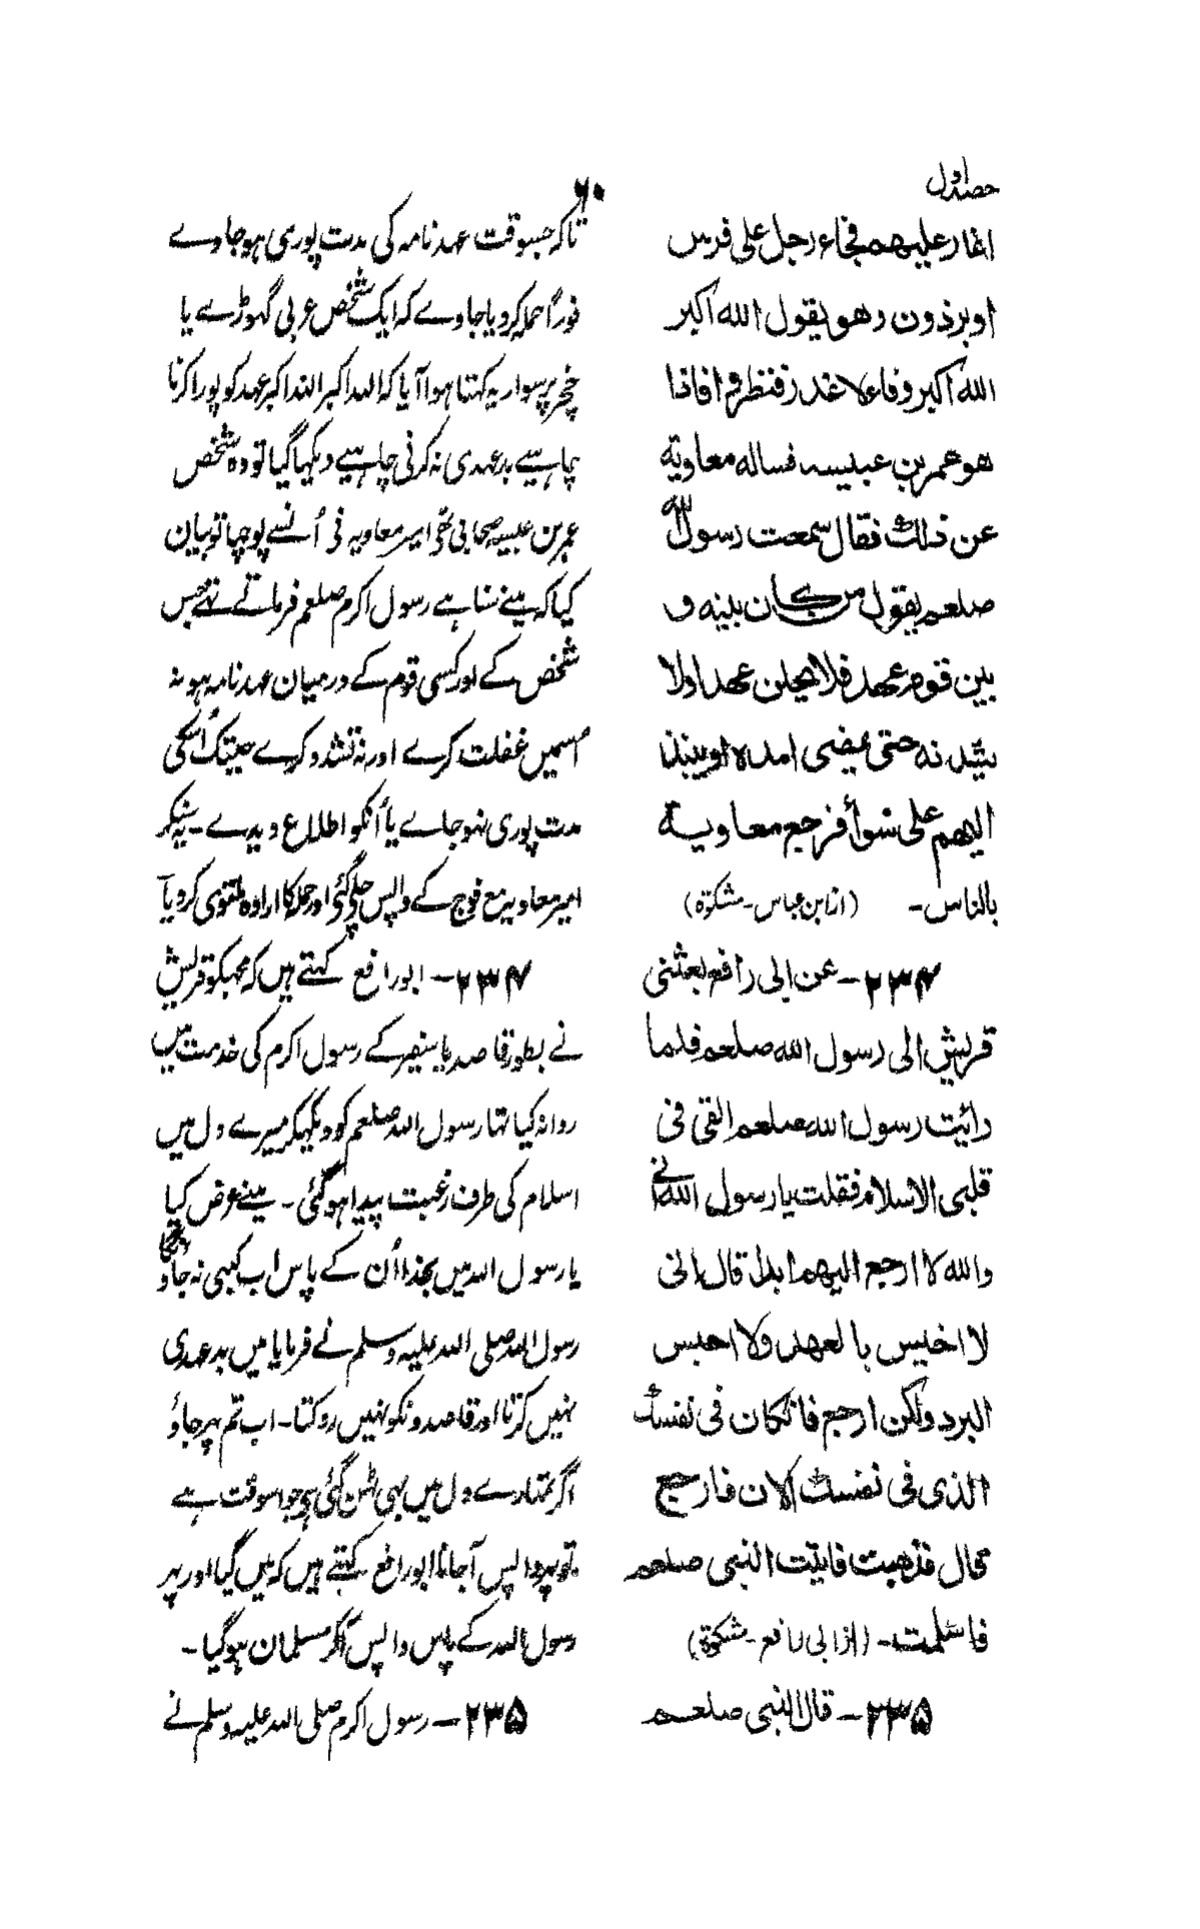 حصہ اول
۶۰
اغار عليهم فجاء رجل على فرس
او برذون وهو يقول الله اكبر
الله اكبر وفاء لا غدر فنظروا فاذا
هو عمر بن عبيسه فساله معاوية
عن ذلك فقال سمعت رسول الله
صلعم يقول من كان بينه و
بين قوم عهد فلا يحلن عهدا ولا
يشدنه حتى يمضى امده او ينبذ
اليهم على سوأ فرجع معاوية
بالناس۔ (از ابن عباس۔ مشکوٰۃ)
۲۳۴۔ عن ابى رافع بعثنى
قريش الى رسول الله صلعم فلما
رائيت رسول الله صلعم القى فى
قلبى الاسلام فقلت يا رسول الله انى
والله لا ارجع اليهم ابدا قال انى
لا اخيس بالعهد ولا احبس
البرد ولكن ارجع فان كان فى نفسك
الذى فى نفسك الان فارجع
قال فذهبت فاتيت النبى صلعم
فاسلمت۔ (از ابی رافع۔ مشکوٰۃ)
۲۳۵۔ قال النبى صلعم
تاکہ جسوقت عہد نامہ کی مدت پوری ہو جاوے
فوراً حملہ کر دیا جاوے کہ ایک شخص عربی گہوڑے یا
خچر پر سوار یہ کہتا ہوا آیا کہ اللہ اکبر اللہ اکبر عہد کو پورا کرنا
چاہیے بدعہدی نہ کرنی چاہیے دیکہا گیا تو وہ شخص
عمر بن عبیسہ صحابی تھے امیر معاویہ نے اُنسے پوچہا تو بیان
کیا کہ مینے سنا ہے رسول اکرم صلعم فرماتے تھے جس
شخص کے اور کسی قوم کے درمیان عہد نامہ ہو نہ
اُسمیں غفلت کرے اور نہ تشدد کرے جبتک اُسکی
مدت پوری نہو جاے یا اُنکو اطلاع دیدے۔ یہ سنکر
امیر معاویہ مع فوج کے واپس چلے گئے اور حملہ کا ارادہ ملتوی کر دیا
۲۳۴۔ ابو رافع کہتے ہیں کہ مجہکو قریش
نے بطور قاصد یا سفیر کے رسول اکرم کی خدمت میں
روانہ کیا تہا رسول اللہ صلعم کو دیکہیکر میرے دل میں
اسلام کی طرف رغبت پیدا ہو گئی۔ مینے عرض کیا
یا رسول اللہ میں بخدا اُن کے پاس اب کبہی نہ جاؤ
رسول اللہ صلی اللہ علیہ وسلم نے فرمایا میں بدعہدی
نہیں کرتا اور قاصدونکو نہیں روکتا۔ اب تم پہر جاؤ
اگر تمہارے دل میں یہی ٹھن گئی ہے جو اسوقت ہے
تو پہر واپس آجانا ابو رافع کہتے ہیں کہ میں گیا اور پہر
رسول اللہ کے پاس واپس آکر مسلمان ہو گیا۔
۲۳۵۔ رسول اکرم صلی اللہ علیہ وسلم نے